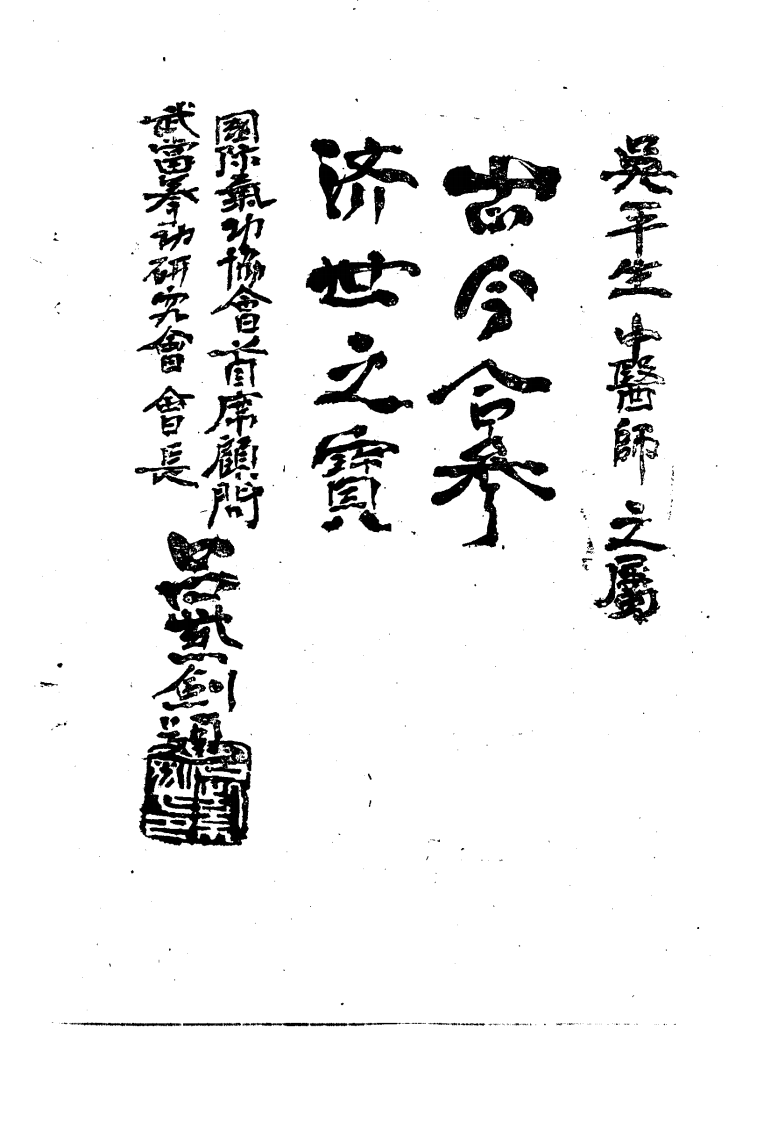 吳平生中醫師之屬
古今合參
済世之寶
國际氣功協會首席顧問
武當拳功研究會會長
呂紫劍題